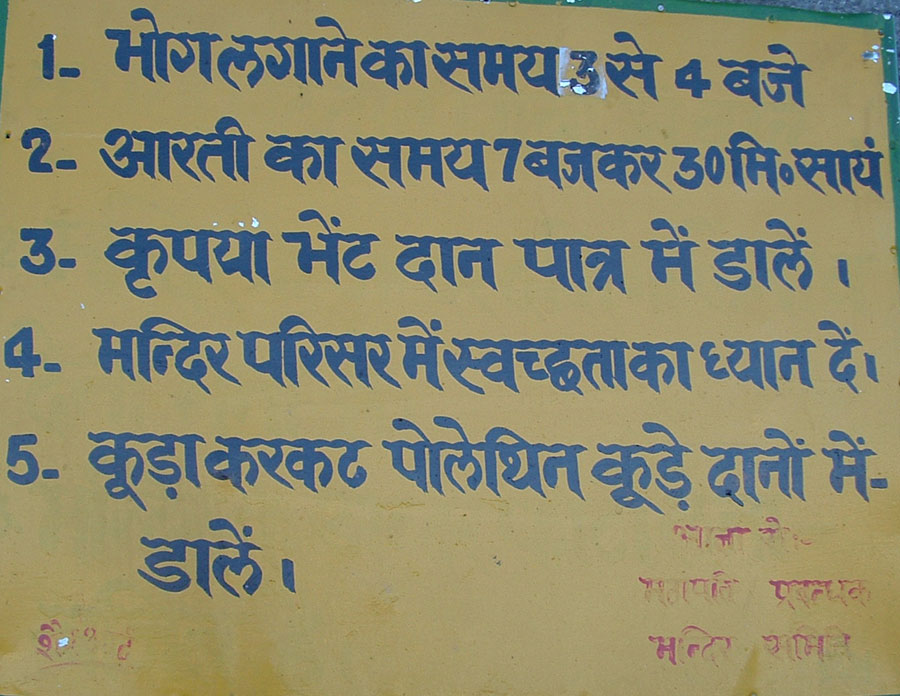 1- भोग लगाने का समय 3 से 4 बजे
2- आरती का समय 7 बजकर 30 मि॰ सायं
3- कृपया भेंट दान पात्र में डालें ।
4- मन्दिर परिसर में स्वच्छता का ध्यान दें।
5- कूड़ा करकट पोलेथिन कूड़े दानों में-
डालें ।
प्रबन्धक
मन्दिर समिति